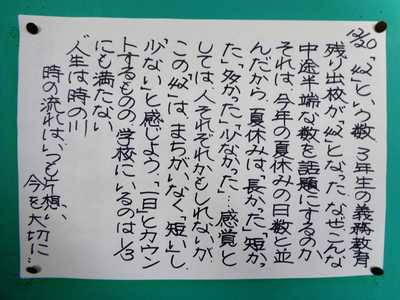 12/20「42」という数 3年生の義務教育
残り出校が「42」となった なぜこんな
中途半端な数を話題にするのか
それは、今年の夏休みの日数と並
んだから 夏休みは、「長かった」「短かっ
た」「多かった」「少なかった」…感覚と
しては、人それぞれかもしれないが、
この「42」は、まちがいなく「短い」し、
「少ない」と感じよう 「一日」とカウン
トするものの、学校にいるのは1/3
にも満たない
“人生は時の川
時の流れは、いつも片想い”
今を大切に…